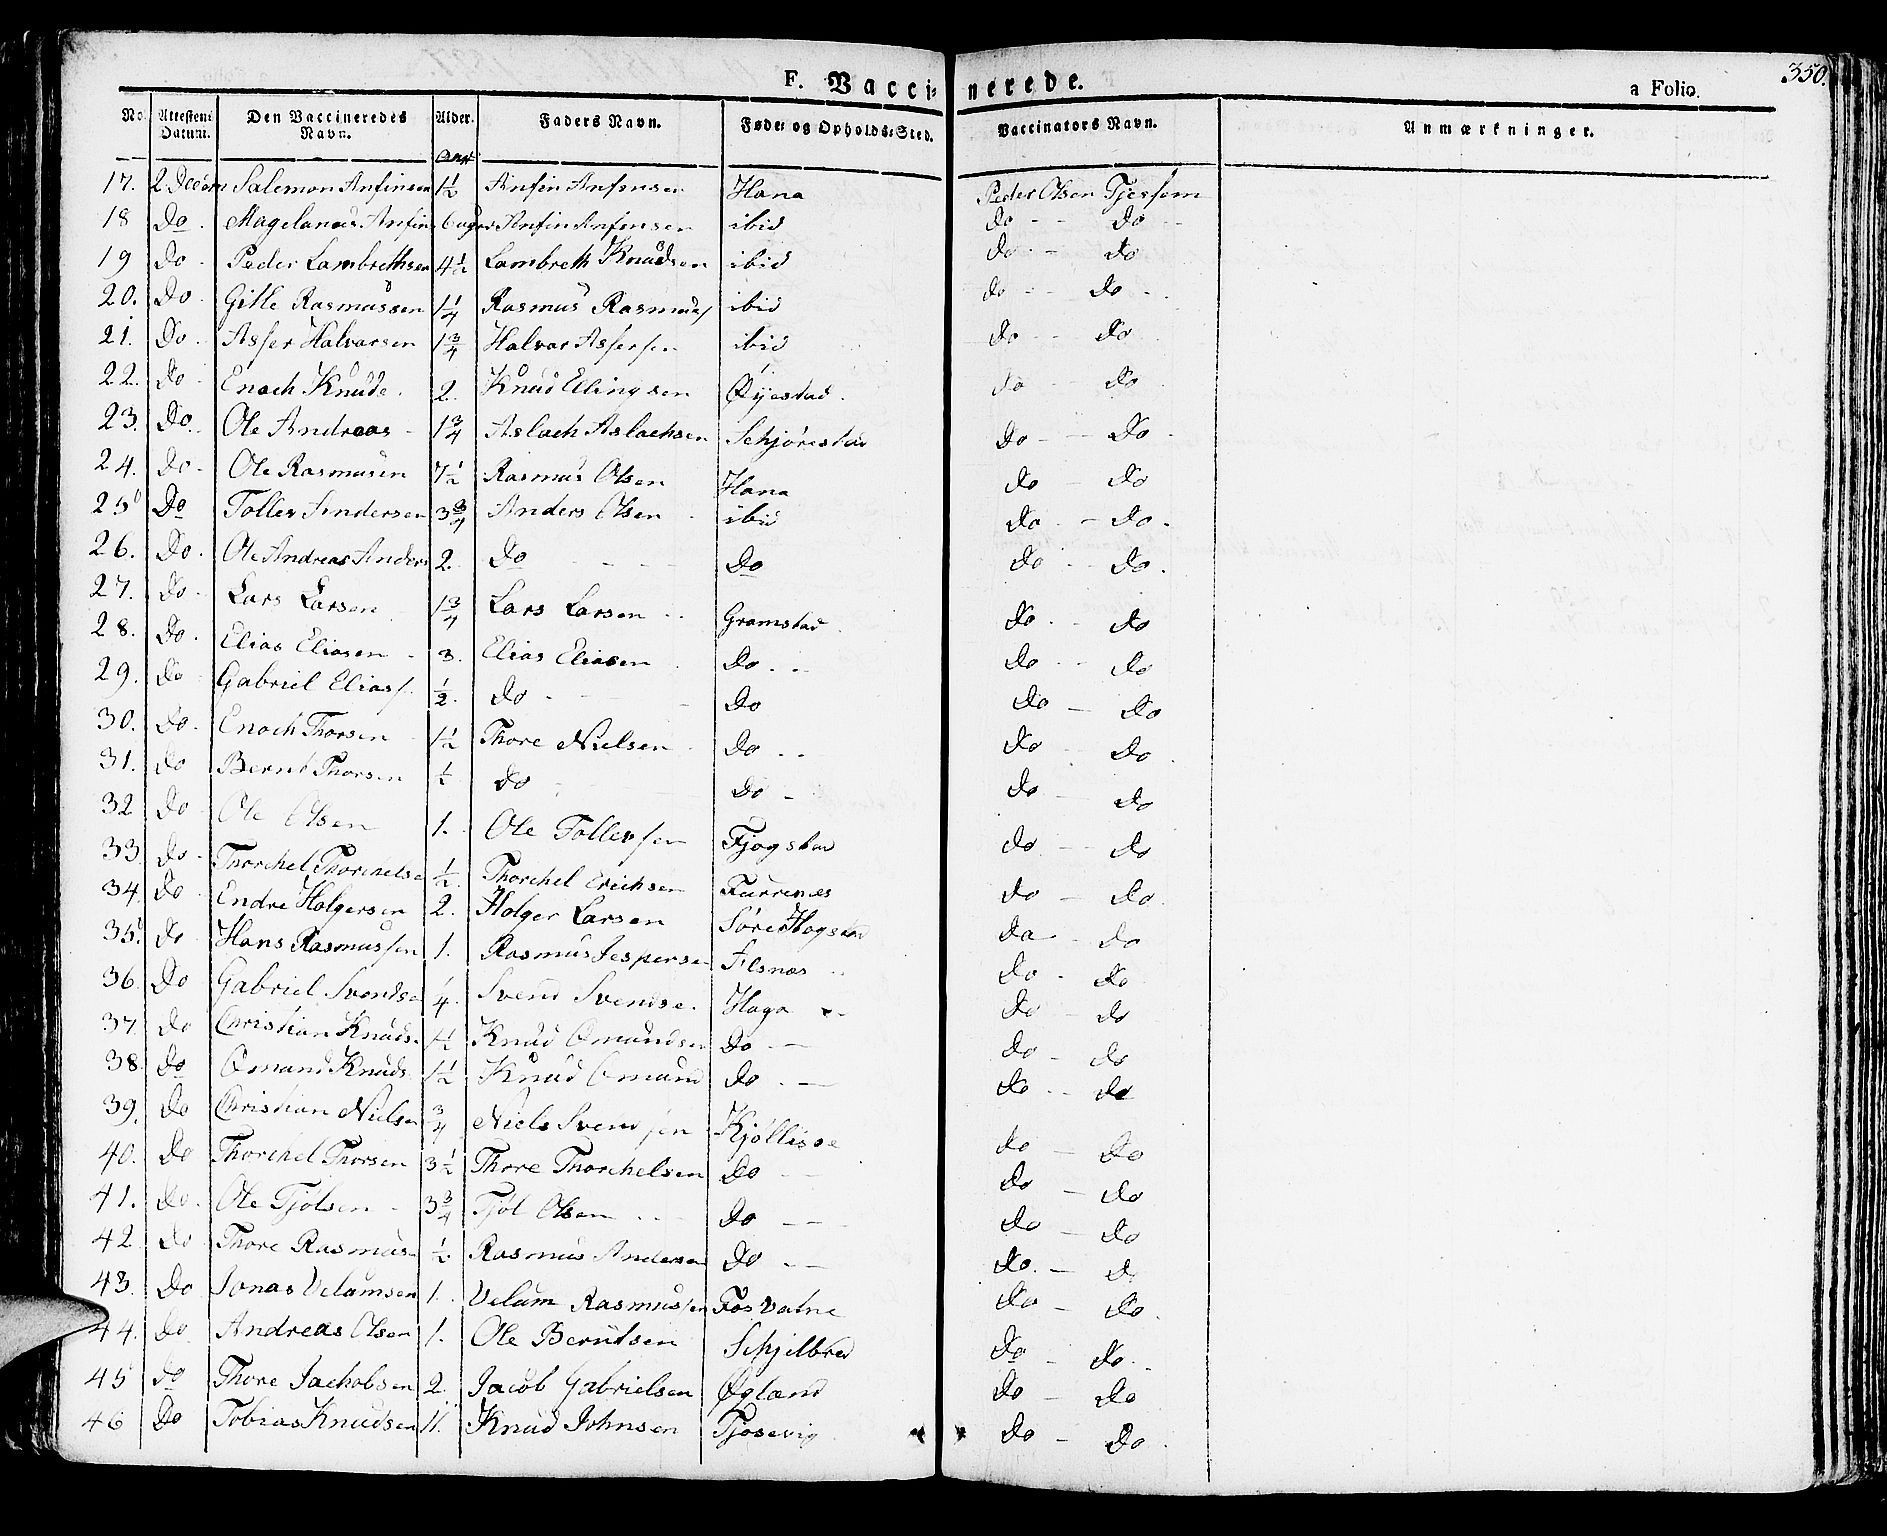 350.
F. Vaccinerede.
a Folio.
No. Attestens Datum. Den Vaccineredes Navn. Alder. Faders Navn. Føde- og Opholds-Sted. Vaccinators Navn. Anmærkninger.
17. 2 Decbr Salemon Anfinsen 1½ Anfin Anfensen Hana Peder Olsen Tjessem
18 Do. Anfin 6 uger Anfin Anfensen ibid Do - - Do - -
19 Do - Peder Lambrethsen 4½ Lambreth Knudsen ibid Do - - Do
20. Do. Gitle Rasmussen 1¼ Rasmus Rasmus ibid do - - Do -
21. Do. Asser Halvarsen 1¾ Halvor Assersen ibid Do - - Do
22. Do - Enoch Knude. 2. Knud Ellingsen Øyestad. do - - Do
23. Do. Ole Andreas - 1¾ Aslach Aslachsen Schjørestad Do - - Do -
24. Do - Ole Rasmusen 7½ Rasmus Olsen Hana Do - Do
25 Do Tollev Andersen 3¾ Anders Olsen - ibid Do. - Do.
26. Do. Ole Andreas Anders 2. Do - - - Do Do - - Do.
27. Do. Lars Larsen 1¾ Lars Larsen - - Gramstad. Do. - Do
28. Do. Elias Eliasen - 3. Elias Eliasen Do. - - Do - - Do
29. Do Gabriel Elias ½. Do - - Do Do - Do
30. Do. Enoch Thorsen 1½ Thore Nielsen - Do - - Do - Do
31. Do Bernt Thorsen ½ Do - Do - Do - Do
32 Do - Ole Olsen 1. Ole Tollevsen Fjogstad Do - - Do
33. Do - Thorchel Thorchelse ½. Thorchel Erichsen Furrenes Do - Do.
34. Do - Endre Holgersen 2. Holger Larsen Søre Hogstad Do - Do
35. Do Hans Rasmussen 1. Rasmus Jesperse Elsnas - - Do - Do
36. Do Gabriel Svendse ¼. Svend Svendse. Haga - - Do - Do
37. Do Christian Knuds. 4½ Knud Omundsen Do - - Do - Do
38. Do Omund Knuds 1½ Knud Omund Do. - Do - - Do
39. Do Christian Nielsen ¾ Niels Svendsen Kjøllisoe Do - Do
40. Do Thorchel Thorsen 3½ Thore Thorchelsen Do - - Do - Do
41. Do. Ole Tjølsen - 3¾ Tjøl Olsen - - Do - - Do - Do
42. Do Thore Rasmus ½. Rasmus Andersen Do. - Do. - D.
43. Do Jonas Velumsen 1. Velum Rasmussen Fosvatne Do - Do.
44. Do Andreas Olsen 1. Ole Berntsen Schjelbred Do - Do. -
45 Do Thore Jachobsen 2. Jacob Gabrielsen Øgland Do - Do
46 Do Tobias Knudsen 11. Knud Johnsen Tjosevig Do - Do.